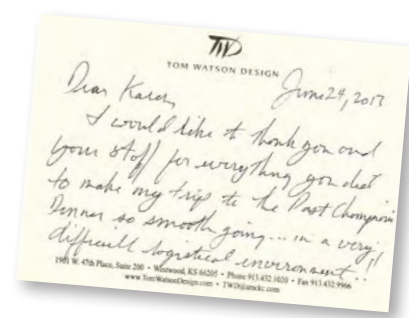 TWD
TOM WATSON DESIGN
June 24, 2013
Dear Karen,
I would like to thank you and
your staff for everything you did
to make my trip to the Past Champions
Dinner so smooth going... in a very
difficult logistical environment..!!
1901 W. 47th Place, Suite 200 • Westwood, KS 66205 • Phone 913.432.1020 • Fax 913.432.9966
www.TomWatsonDesign.com • TWD@amckc.com